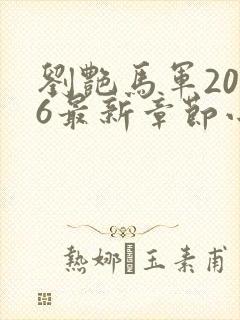 劉艷馬軍20
6最新章節
熱娜 玉素甫